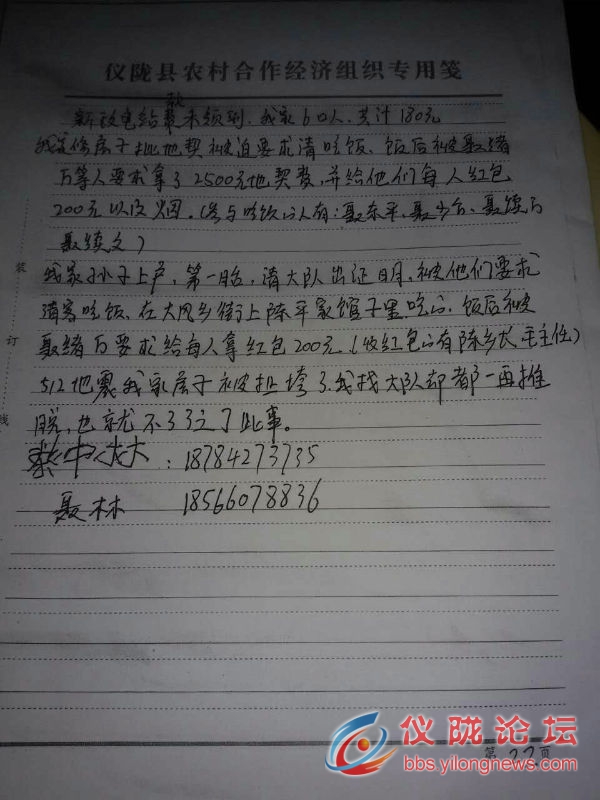 仪陇县农村合作经济组织专用笺
新政电站款未领到，我家6口人、共计180元
我家修房子批地契被迫要求请吃饭、饭后被聂绪
万等人要求拿了2500元地契款，并给他们每人红包
200元以及烟.（参与吃饭的人有：聂东平、聂少台、聂绪万
聂绪文）
我家孙子上户，第一月台，请大队出证明、被他们要求
请客吃饭、在大风乡街上陈平家馆子里吃的，饭后被
聂绪万要求给每人拿红包200元.（收红包的有陈乡长、毛主任）
512地震我家房子被扭垮了.我找大队却都一再推
脱，也就不了了之了此事。
中林：18784273735
聂林 18566078836
装
订
线
第22页
仪陇论坛
bbs.yilongnews.com